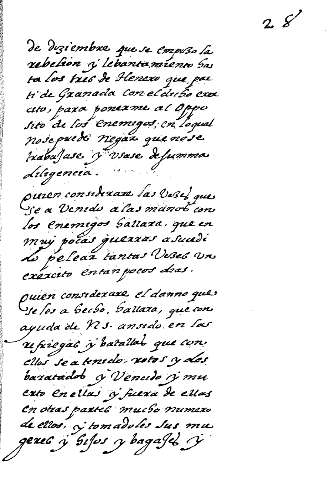 28
de diziembre que se empezo la
rebelion y lebantamiento has
ta los tres de Henero que par
ti de Granada con el dicho exer
cito, para ponerme al oppo
sito de los enemigos, en lo qual
no se puede negar que no se
trabajase y usase de summa
diligencia.
Quien considerare las vezes que
se a venido a las manos con
los enemigos hallara, que en
muy pocas guerras a sucedi
do pelear tantas vezes un
exercito en tan pocos dias.
Quien considerare el danno que
se les a hecho, hallara, que con
ayuda de N.S. an sido en las
refriegas y batallas que con
ellos se a tenido rotos y des
baratados y vencido y mu
erto en ellas y fuera de ellas
en otras partes mucho numero
de ellos, y tomadoles sus mu
geres y hijos y bagajes y